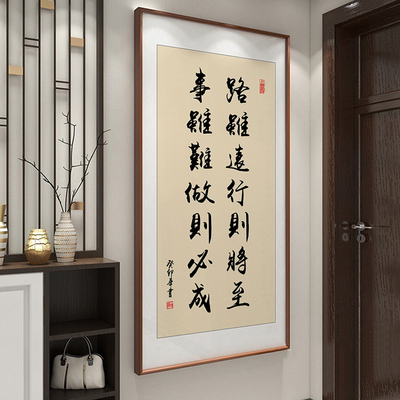 路雖遠行則將至
事雖難做則必成
癸卯書